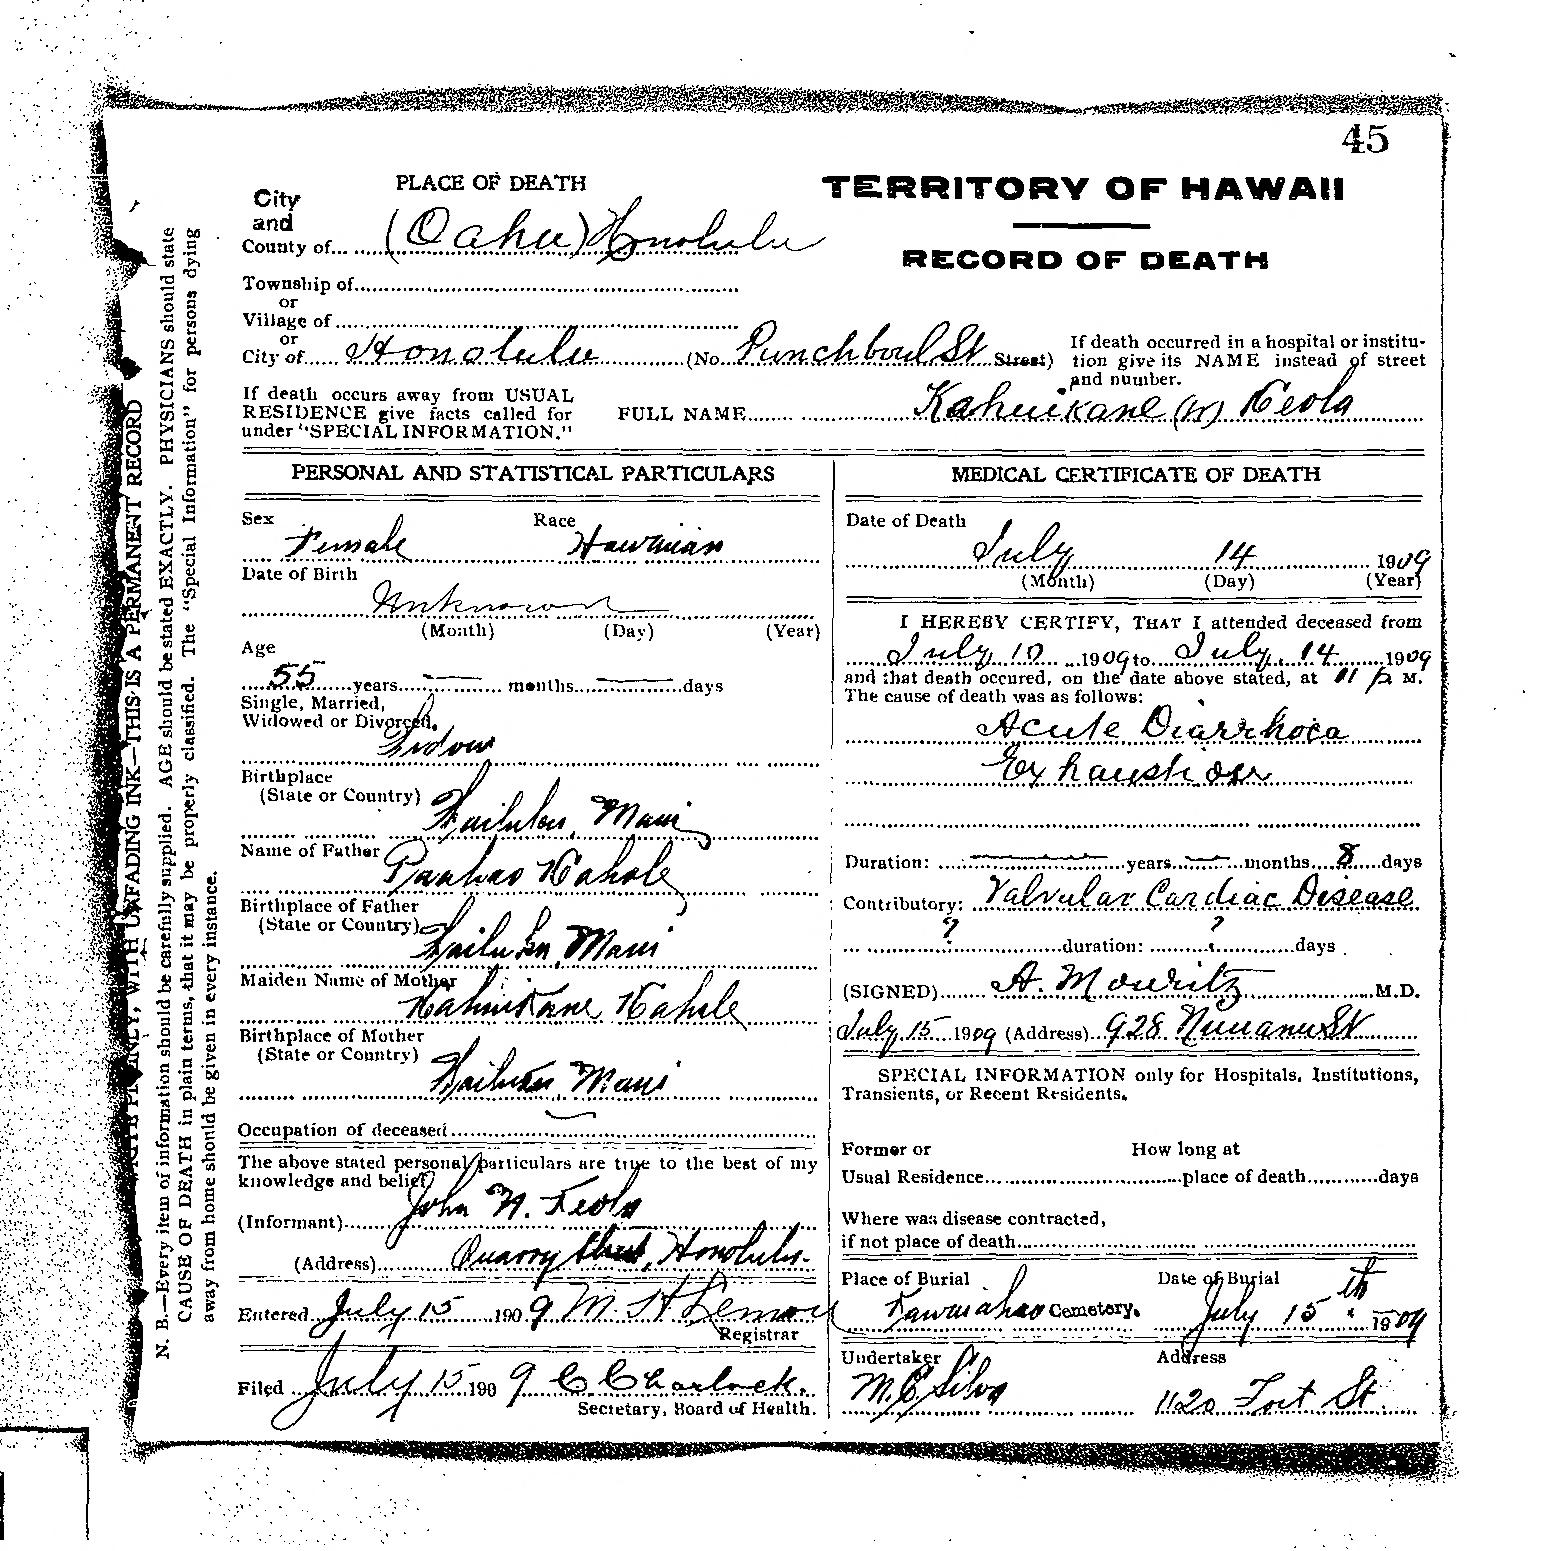 45
PLACE OF DEATH
TERRITORY OF HAWAII
RECORD OF DEATH
City
and
County of (Oahu) Honolulu
Township of
or
Village of
or
City of Honolulu (No. Punchbowl St Street)
If death occurred in a hospital or institu-
tion give its NAME instead of street
and number.
If death occurs away from USUAL
RESIDENCE give facts called for
under "SPECIAL INFORMATION."
FULL NAME Kahuikane (M) Keola
PERSONAL AND STATISTICAL PARTICULARS
Sex Race
Female Hawaiian
Date of Birth
Unknown
(Month) (Day) (Year)
Age
55 years — months — days
Single, Married,
Widowed or Divorced.
Widow
Birthplace
(State or Country) Wailuku, Maui
Name of Father Kahole
Birthplace of Father
(State or Country) Wailuku, Maui
Maiden Name of Mother
Kahuikane Kahole
Birthplace of Mother
(State or Country) Wailuku, Maui
Occupation of deceased —
The above stated personal particulars are true to the best of my
knowledge and belief
(Informant) John W. Keola
(Address) Quarry Street, Honolulu.
Entered July 15 1909 M. H. Lemon
Registrar
Filed July 15 1909 C Charlock.
Secretary, Board of Health.
MEDICAL CERTIFICATE OF DEATH
Date of Death
July 14 1909
(Month) (Day) (Year)
I HEREBY CERTIFY, THAT I attended deceased from
July 10 1909 to July 14 1909
and that death occured, on the date above stated, at 11 P M.
The cause of death was as follows:
Acute Diarrhoea
Exhaustion
Duration: — years — months 8 days
Contributory: Valvular Cardiac Disease
? duration: ? days
(SIGNED) A. Mowritz M.D.
July 15 1909 (Address) 928 Nuuanu St
SPECIAL INFORMATION only for Hospitals, Institutions,
Transients, or Recent Residents.
Former or How long at
Usual Residence place of death days
Where was disease contracted,
if not place of death
Place of Burial Date of Burial
Kawaiahao Cemetery. July 15th 1909
Undertaker Address
M. E. Silva 1120 Fort St.
WRITE PLAINLY, WITH UNFADING INK—THIS IS A PERMANENT RECORD
N. B.—Every item of information should be carefully supplied. AGE should be stated EXACTLY. PHYSICIANS should state
CAUSE OF DEATH in plain terms, that it may be properly classified. The "Special Information" for persons dying
away from home should be given in every instance.